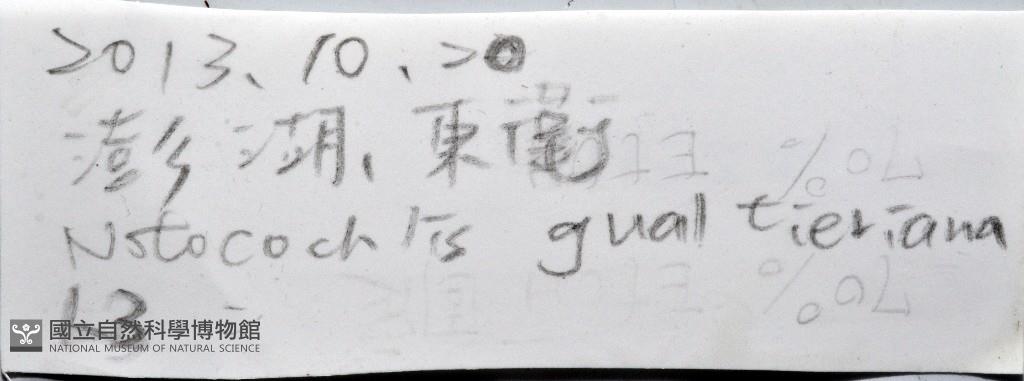 2013、10、20
澎湖、東衛
Notocochlis gualtieriana
13
國立自然科學博物館
NATIONAL MUSEUM OF NATURAL SCIENCE